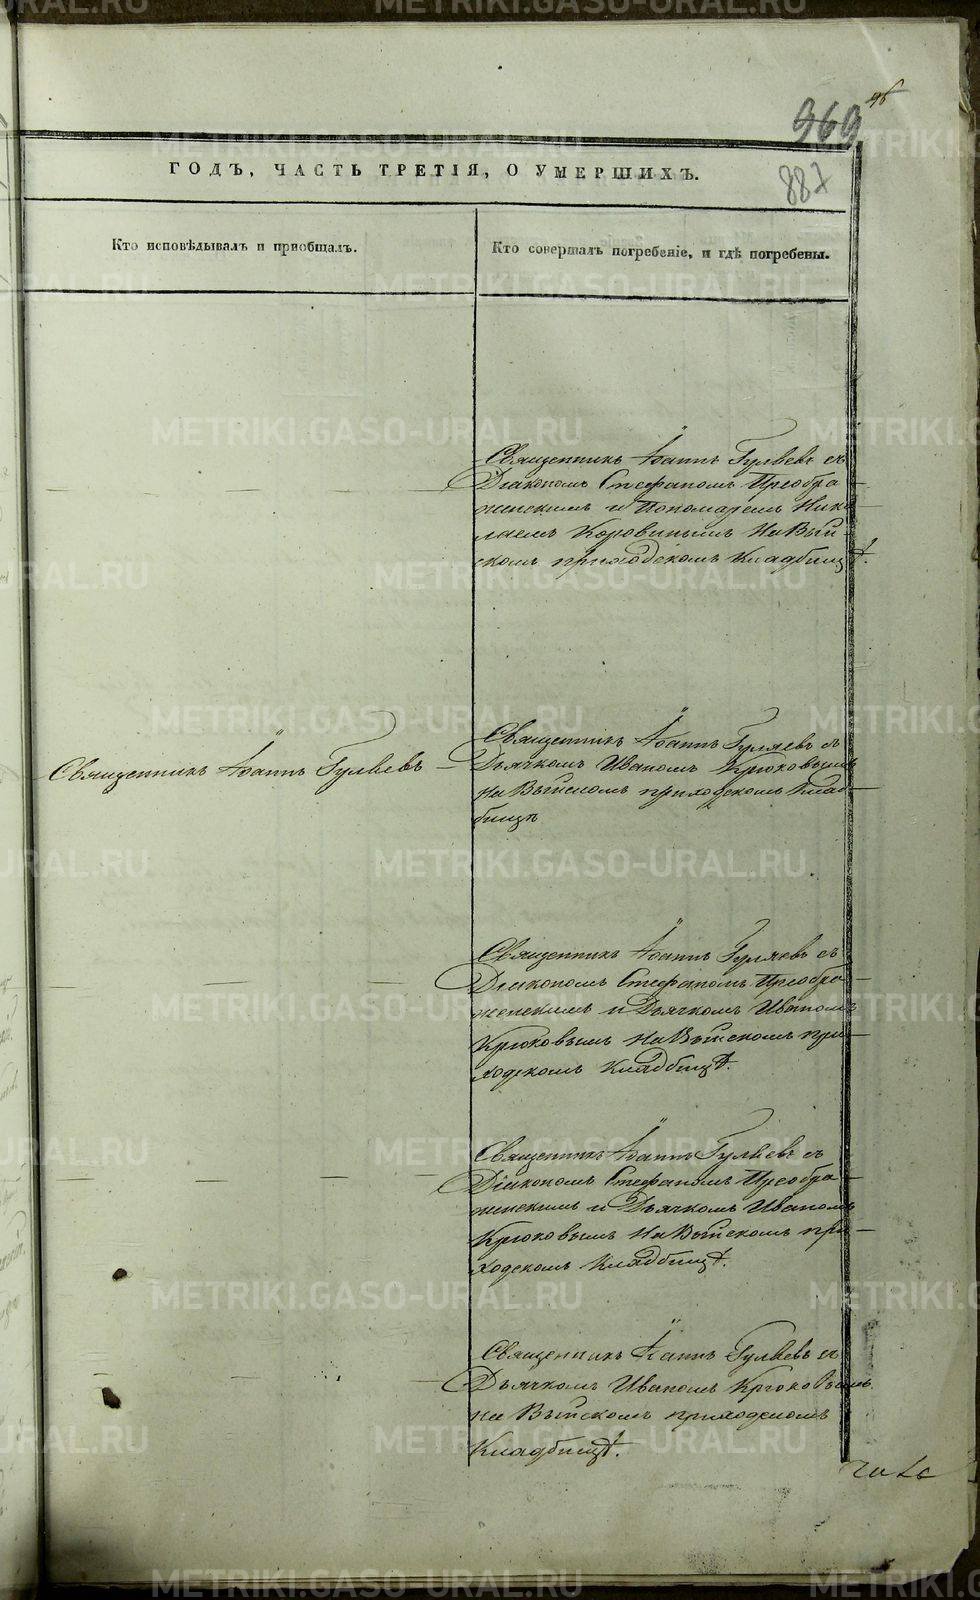 969
887
ГОДЪ, ЧАСТЬ ТРЕТІЯ, О УМЕРШИХЪ.
Кто исповѣдывалъ и пріобщалъ.
Кто совершалъ погребеніе, и гдѣ погребены.
Священникъ Іоаннъ Гуляевъ съ
Діакономъ Стефаномъ Преобра
женскимъ и Пономаремъ Нико
лаемъ Коровинымъ на Вый
скомъ приходскомъ Кладбищѣ.
Священникъ Іоаннъ Гуляевъ
Священникъ Іоаннъ Гуляевъ съ
Дьячкомъ Иваномъ Крюковымъ
на Выйскомъ приходскомъ Клад
бищѣ
Священникъ Іоаннъ Гуляевъ съ
Діакономъ Стефаномъ Преобра
женскимъ и Дьячкомъ Иваномъ
Крюковымъ на Выйскомъ при
ходскомъ Кладбищѣ.
Священникъ Іоаннъ Гуляевъ съ
Діакономъ Стефаномъ Преобра
женскимъ и Дьячкомъ Иваномъ
Крюковымъ на Выйскомъ при
ходскомъ Кладбищѣ.
Священникъ Іоаннъ Гуляевъ съ
Дьячкомъ Иваномъ Крюковымъ
на Выйскомъ приходскомъ
Кладбищѣ.
METRIKI.GASO-URAL.RU